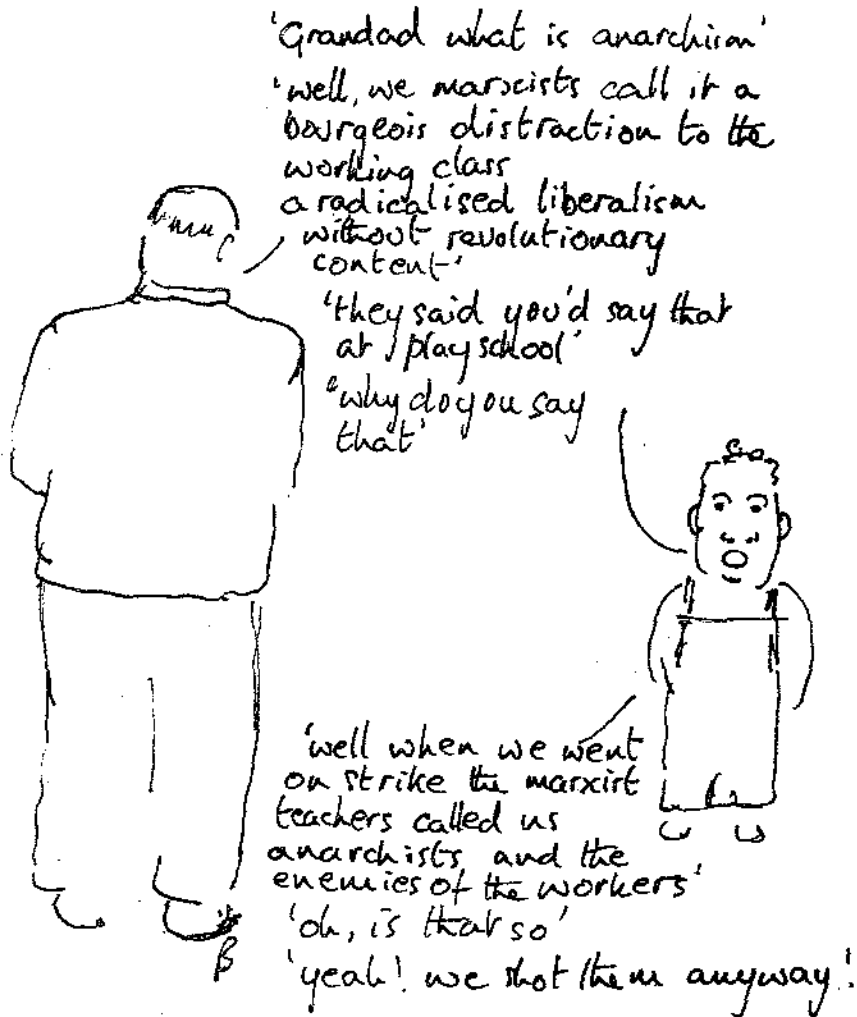 'Grandad what is anarchism'
'well, we marxists call it a
bourgeois distraction to the
working class
a radicalised liberalism
without revolutionary
content'
'they said you'd say that
at playschool'
'why do you say
that'
'well when we went
on strike the marxist
teachers called us
anarchists and the
enemies of the workers'
'oh, is that so'
'yeah! we shot them anyway'.
β